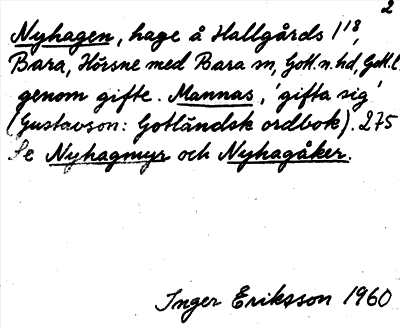 2
Nyhagen, hage å Hallgårds 1¹⁸,
Bara, Hörsne med Bara sn, Gotl. n. hd, Gotl. l
genom gifte. Mannas, 'gifta sig'
(Gustavson: Gotländsk ordbok). 275
Se Nyhagmyr och Nyhagåker.
Inger Eriksson 1960